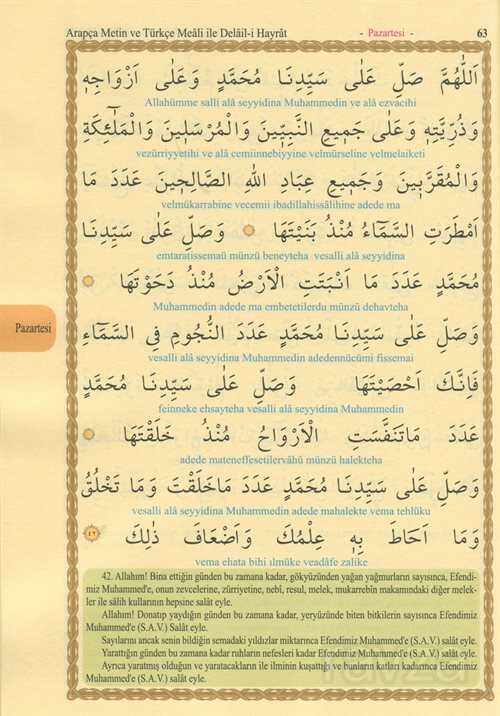 Arapça Metin ve Türkçe Meâli ile Delâil-i Hayrât - Pazartesi - 63
اَللّٰهُمَّ صَلِّ عَلٰى سَيِّدِنَا مُحَمَّدٍ وَعَلٰى اَزْوَاجِهِ
Allahümme salli alâ seyyidina Muhammedin ve alâ ezvacihi
وَذُرِّيَّتِهِ وَعَلٰى جَمِيعِ النَّبِيِّينَ وَالْمُرْسَلِينَ وَالْمَلٰٓئِكَةِ
vezürriyyetihi ve alâ cemiinnebiyyine velmürseline velmelaiketi
وَالْمُقَرَّبِينَ وَجَمِيعِ عِبَادِ اللّٰهِ الصَّالِحِينَ عَدَدَ مَا
velmükarrabine vecemii ibadillahissâlihine adede ma
اَمْطَرَتِ السَّمَٓاءُ مُنْذُ بَنَيْتَهَا وَصَلِّ عَلٰى سَيِّدِنَا
emtaratissemaü münzü beneyteha vesalli alâ seyyidina
مُحَمَّدٍ عَدَدَ مَا اَنْبَتَتِ الْاَرْضُ مُنْذُ دَحَوْتَهَا
Muhammedin adede ma embetetilerdu münzü dehavteha
وَصَلِّ عَلٰى سَيِّدِنَا مُحَمَّدٍ عَدَدَ النُّجُومِ فِى السَّمَٓاءِ
vesalli alâ seyyidina Muhammedin adedennücûmi fissemai
Pazartesi
فَاِنَّكَ اَحْصَيْتَهَا وَصَلِّ عَلٰى سَيِّدِنَا مُحَمَّدٍ
feinneke ehsayteha vesalli alâ seyyidina Muhammedin
عَدَدَ مَاتَنَفَّسَتِ الْاَرْوَاحُ مُنْذُ خَلَقْتَهَا
adede mateneffesetilervâhü münzü halekteha
وَصَلِّ عَلٰى سَيِّدِنَا مُحَمَّدٍ عَدَدَ مَاخَلَقْتَ وَمَا تَخْلُقُ
vesalli alâ seyyidina Muhammedin adede mahalekte vema tehlüku
وَمَٓا اَحَاطَ بِهِ عِلْمُكَ وَاَضْعَافَ ذٰلِكَ ٤٢
vema ehata bihi ilmüke veadâfe zalike
42. Allahım! Bina ettiğin günden bu zamana kadar, gökyüzünden yağan yağmurların sayısınca, Efendi-
miz Muhammed'e, onun zevcelerine, zürriyetine, nebî, resul, melek, mukarrebîn makamındaki diğer melek-
ler ile sâlih kullarının hepsine salât eyle.
Allahım! Donatıp yaydığın günden bu zamana kadar, yeryüzünde biten bitkilerin sayısınca Efendimiz
Muhammed'e (S.A.V.) Salât eyle.
Sayılarını ancak senin bildiğin semadaki yıldızlar miktarınca Efendimiz Muhammed'e (S.A.V.) salât eyle.
Yarattığın günden bu zamana kadar ruhların nefesleri kadar Efendimiz Muhammed'e (S.A.V.) salât eyle.
Ayrıca yaratmış olduğun ve yaratacakların ile ilminin kuşattığı ve bunların katları kadarınca Efendimiz
Muhammed'e (S.A.V.) salât eyle.